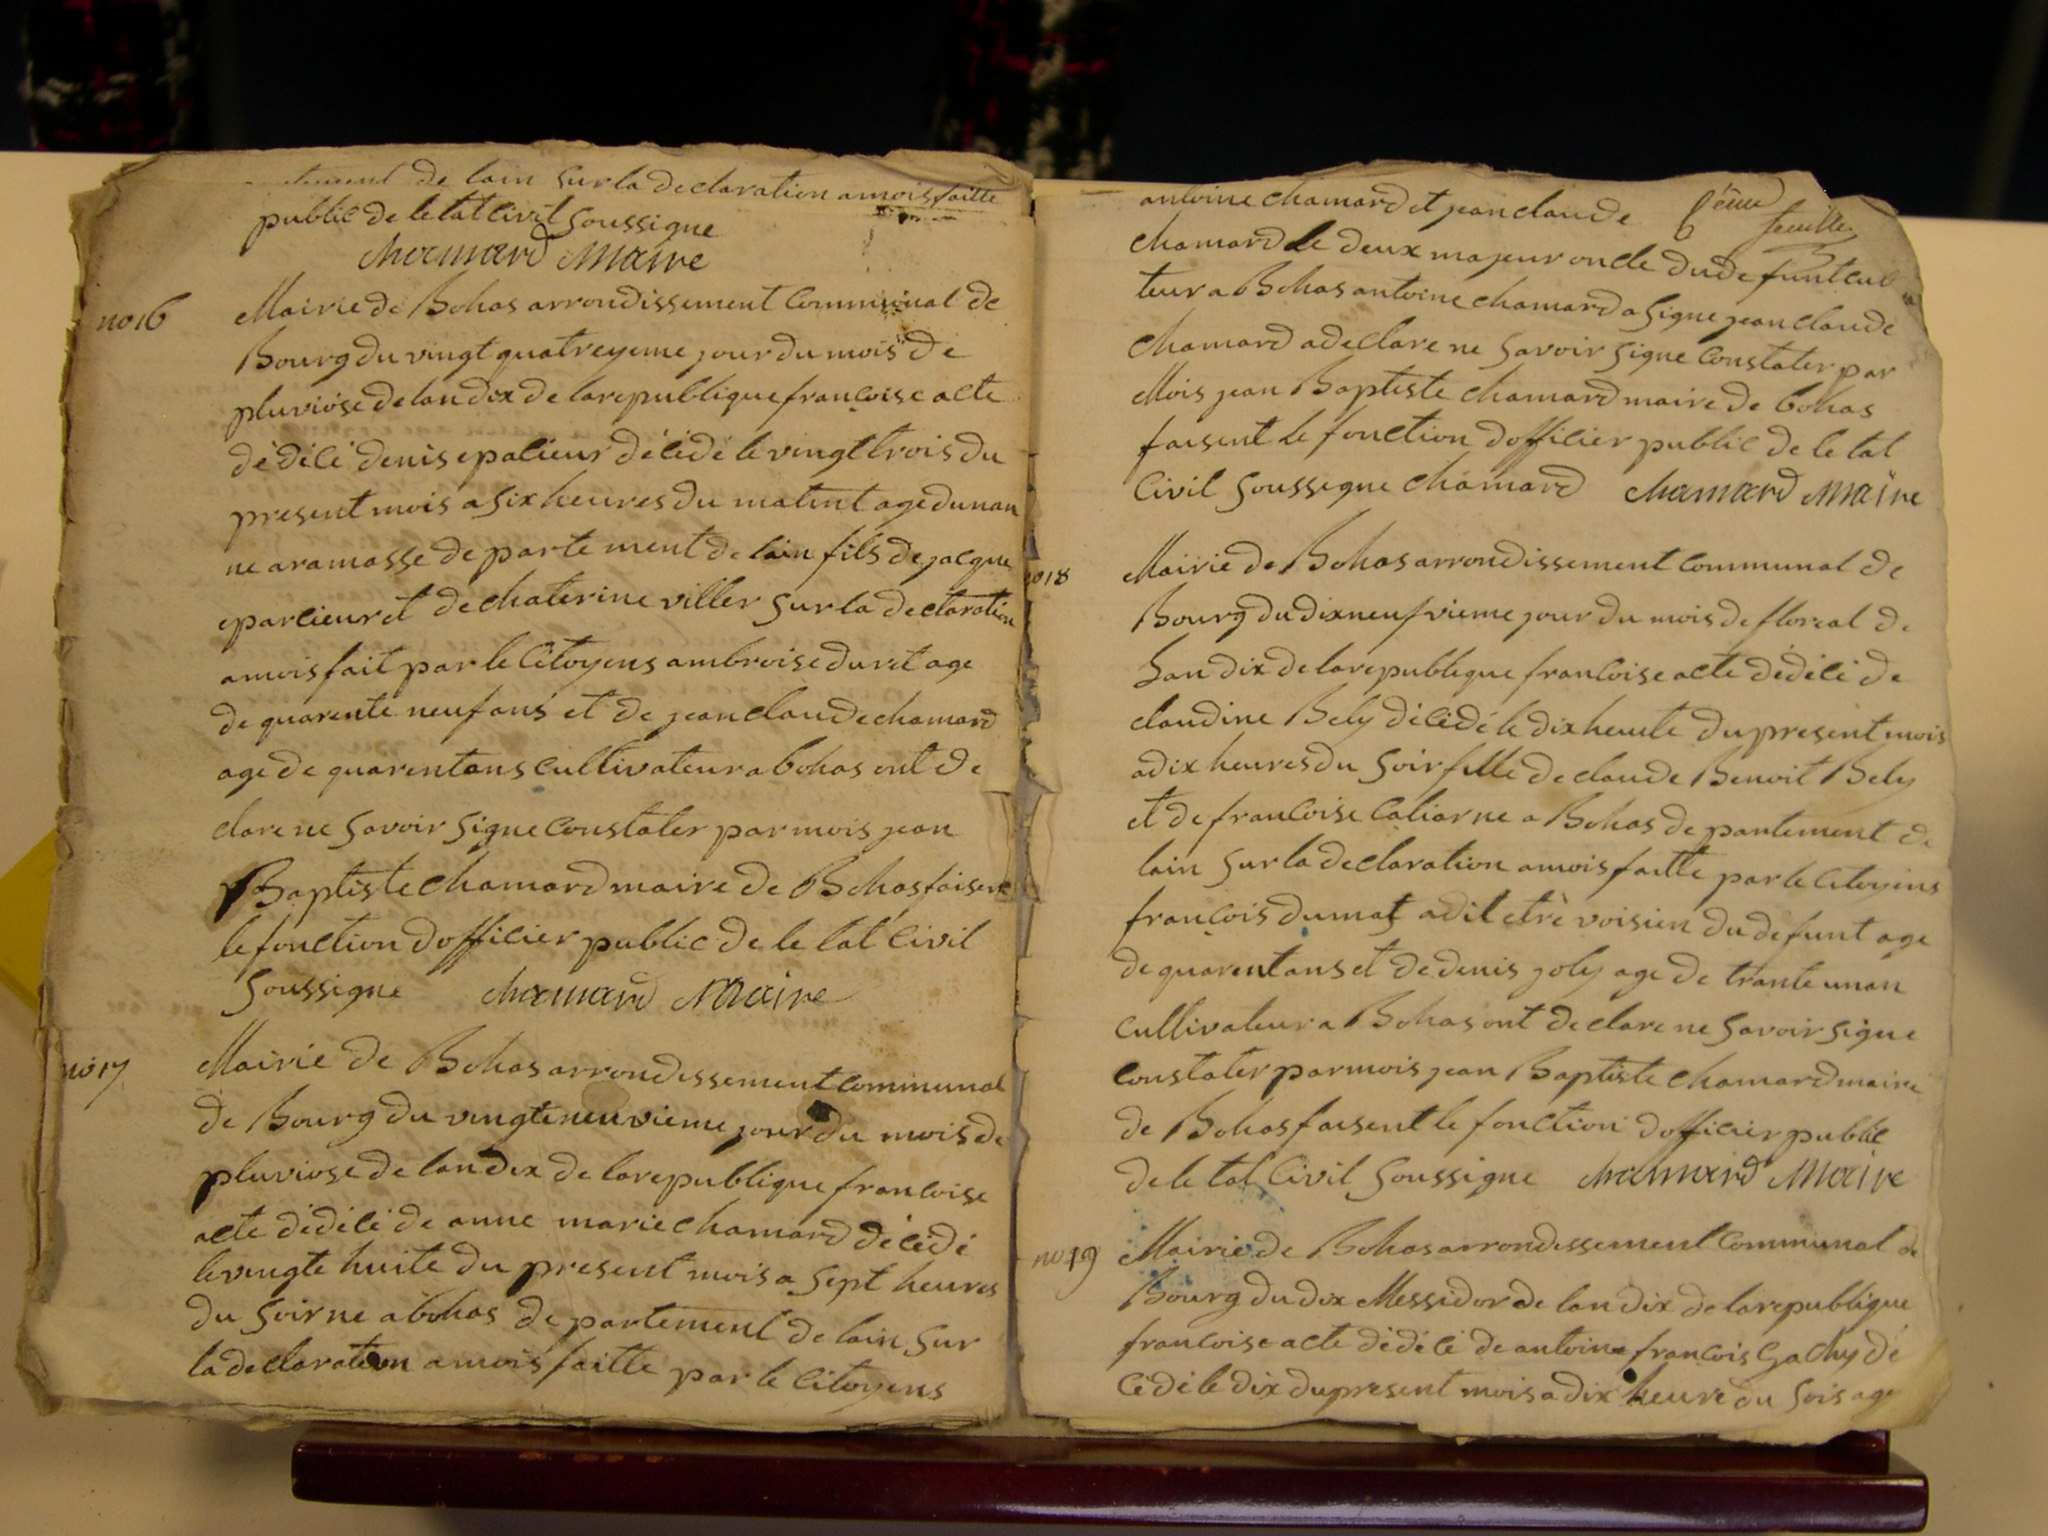 de lain sur la declaration a mois faitte
public de letat civil soussigne
chamard maire
no 16
Mairie de Bohas arrondissement communal de
Bourg du vingt quatreyeme jour du mois de
pluviose de lan dix de la republique francoise acte
dédécé denis epalieur décédé le vingt trois du
present mois a six heures du matint age dun an
ne a ramasse departement de lain fils de jacque
eparcieur et de chaterine viller sur la declaration
a mois fait par le citoyens ambroise duret age
de quarente neuf ans et de jean claude chamard
age de quarent ans cultivateur a bohas ont de
clare ne savoir signe constater par mois jean
Baptiste chamard maire de Bohas faisent
le fonction dofficier public de letat civil
soussigne chamard Maire
no 17
Mairie de Bohas arrondissement communal
de Bourg du vingte neuvieme jour du mois de
pluviose de lan dix de la republique francoise
acte dédécé de anne marie chamard décédé
le vingte huite du present mois a sept heures
du soir ne a bohas departement de lain sur
la declaration a mois faitte par le citoyens
6 eme feuille
antoine chamard et jean claude
chamard le deux majeur oncle du defunt cul
teur a Bohas antoine chamard a signe jean claude
chamard a declare ne savoir signe constater par
Mois jean Baptiste chamard maire de bohas
faisent le fonction dofficier public de letat
civil soussigne chamard chamard Maire
no 18
Mairie de Bohas arrondissement communal de
Bourg du dix neufvieme jour du mois de floreal de
Lan dix de la republique francoise acte dédécé de
claudine Bely décédé le dix heuite du present mois
a dix heures du soir fille de claude Benoit Bely
et de francoise caliar ne a Bohas departement de
lain sur la declaration a mois faitte par le citoyens
françois dumas a dit etrè voisien du defunt age
de quarent ans et de denis joly age de trante un an
cultivateur a Bohas ont declare ne savoir signe
constater par mois jean Baptiste chamard maire
de Bohas faisent le fonction dofficier public
de letat civil soussigne chamard Maire
no 19
Mairie de Bohas arrondissement communal de
Bourg du dix Messidor de lan dix de la republique
francoise acte dédécé de antoine francois Gachy dé
cédé le dix du present mois a dix heure du sois age